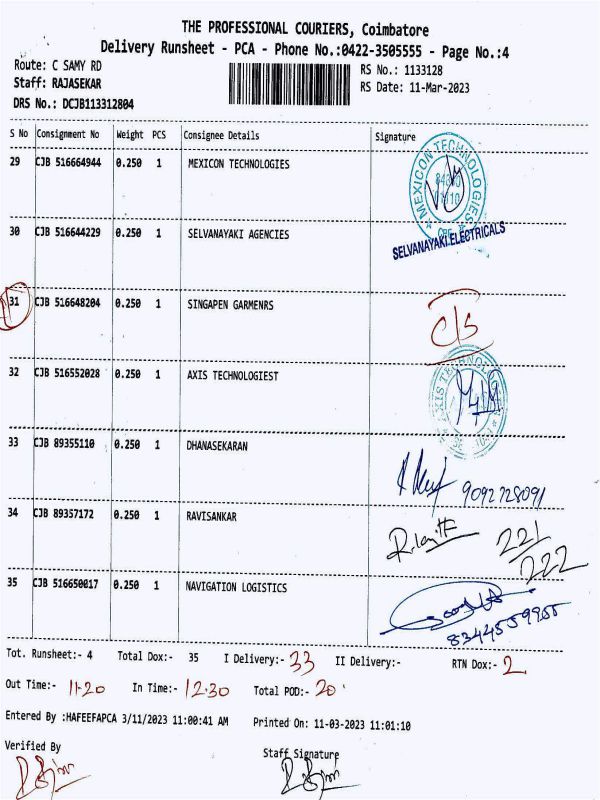 THE PROFESSIONAL COURIERS, Coimbatore
Delivery Runsheet - PCA - Phone No.:0422-3505555 - Page No.:4
Route: C SAMY RD
RS No.: 1133128
Staff: RAJASEKAR
RS Date: 11-Mar-2023
DRS No.: DCJB113312804
S No Consignment No Weight PCS Consignee Details Signature
29 CJB 516664944 0.250 1 MEXICON TECHNOLOGIES
MEXICON TECHNOLOGIES
30 CJB 516644229 0.250 1 SELVANAYAKI AGENCIES
SELVANAYAKI ELECTRICALS
31 CJB 516648204 0.250 1 SINGAPEN GARMENRS
C/S
32 CJB 516552028 0.250 1 AXIS TECHNOLOGIEST
33 CJB 89355110 0.250 1 DHANASEKARAN
9092728091
34 CJB 89357172 0.250 1 RAVISANKAR
221/222
35 CJB 516650017 0.250 1 NAVIGATION LOGISTICS
8344559955
Tot. Runsheet:- 4 Total Dox:- 35 I Delivery:- 33 II Delivery:- RTN Dox:- 2
Out Time:- 11.20 In Time:- 12.30 Total POD:- 20
Entered By :HAFEEFAPCA 3/11/2023 11:00:41 AM Printed On: 11-03-2023 11:01:10
Verified By
Staff Signature